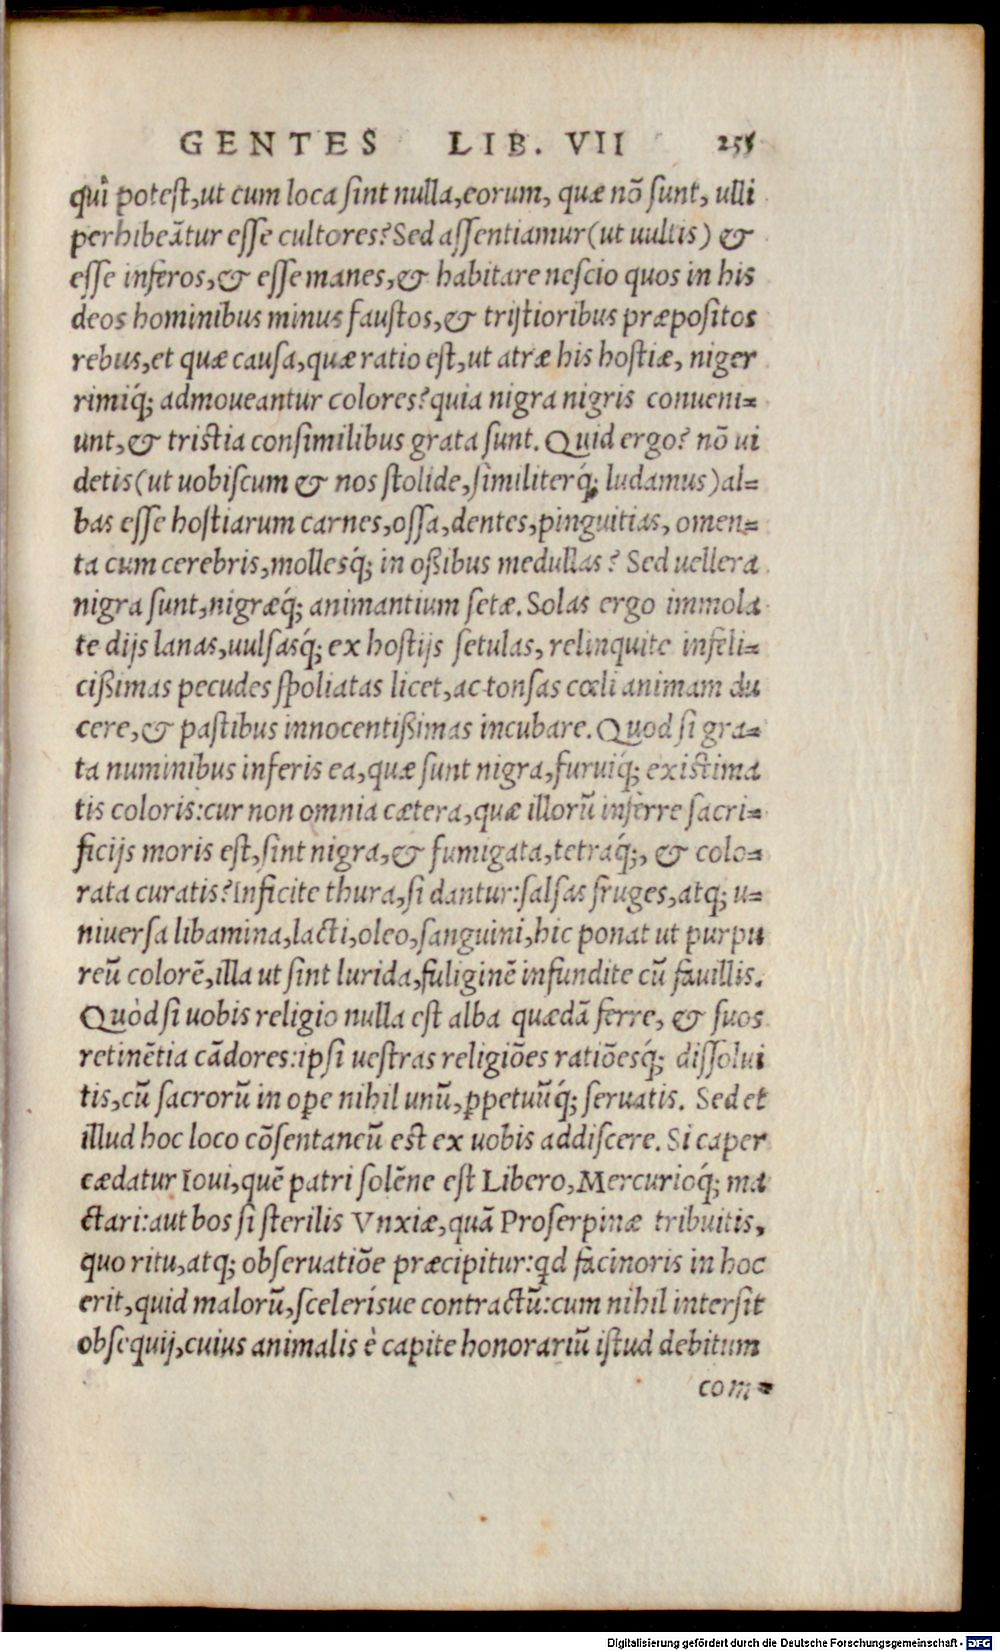 GENTES LIB. VII 255
quî potest,ut cum loca sint nulla,eorum, quæ nõ sunt, ulli
perhibeãtur esse cultores?Sed assentiamur(ut uultis) &
esse inferos,& esse manes,& habitare nescio quos in his
deos hominibus minus faustos,& tristioribus præpositos
rebus,et quæ causa,quæ ratio est,ut atræ his hostiæ, niger
rimiq́; admoueantur colores?quia nigra nigris conueni=
unt,& tristia consimilibus grata sunt. Quid ergo? nõ ui
detis(ut uobiscum & nos stolide,similiterq́; ludamus)al=
bas esse hostiarum carnes,ossa,dentes,pinguitias, omen=
ta cum cerebris,mollesq́; in oßibus medullas? Sed uellera
nigra sunt,nigræq́; animantium setæ. Solas ergo immola
te dijs lanas,uulsasq́; ex hostijs setulas, relinquite infeli=
cißimas pecudes spoliatas licet,ac tonsas cœli animam du
cere,& pastibus innocentißimas incubare. Quod si gra=
ta numinibus inferis ea,quæ sunt nigra,furuiq́; existima
tis coloris:cur non omnia cætera,quæ illorũ inferre sacri=
ficijs moris est,sint nigra,& fumigata,tetraq́;, & colo=
rata curatis?Inficite thura,si dantur:salsas fruges,atq; u=
niuersa libamina,lacti,oleo,sanguini,hic ponat ut purpu
reũ colorẽ,illa ut sint lurida,fuliginẽ infundite cũ fauillis.
Quòd si uobis religio nulla est alba quædã ferre, & suos
retinẽtia cãdores:ipsi uestras religiões ratiõesq́; dissolui
tis,cũ sacrorũ in ope nihil unũ,ꝑpetuũq́; seruatis. Sed et
illud hoc loco cõsentaneũ est ex uobis addiscere. Si caper
cædatur Ioui,quẽ patri solẽne est Libero,Mercurioq́; ma
ctari:aut bos si sterilis Vnxiæ,quã Proserpinæ tribuitis,
quo ritu,atq; obseruatiõe præcipitur:qd facinoris in hoc
erit,quid malorũ,scelerisue contractũ:cum nihil intersit
obsequij,cuius animalis è capite honorariũ istud debitum
com=
Digitalisierung gefördert durch die Deutsche Forschungsgemeinschaft - DFG